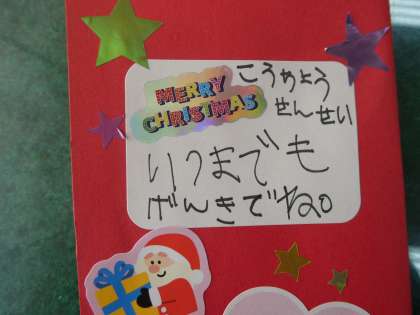 MERRY
CHRISTMAS
こうめとう
せんせい
いつまでも
げんきでね。